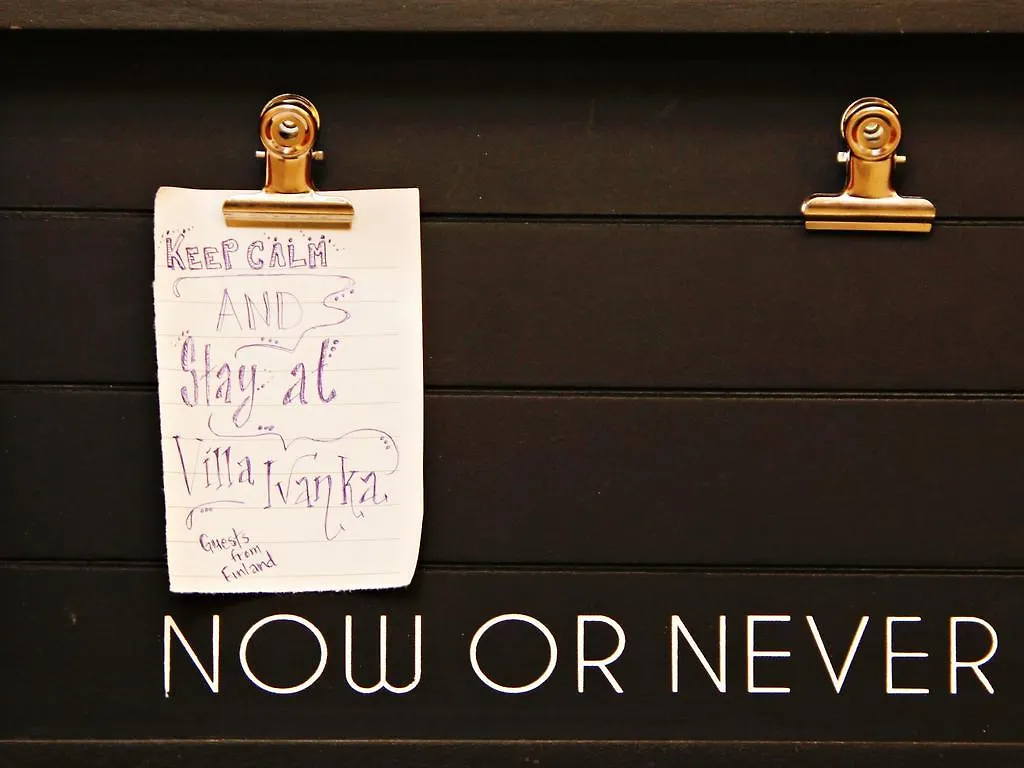 KEEP CALM
AND
Stay at
Villa Ivanka
Guests
from
Finland
NOW OR NEVER